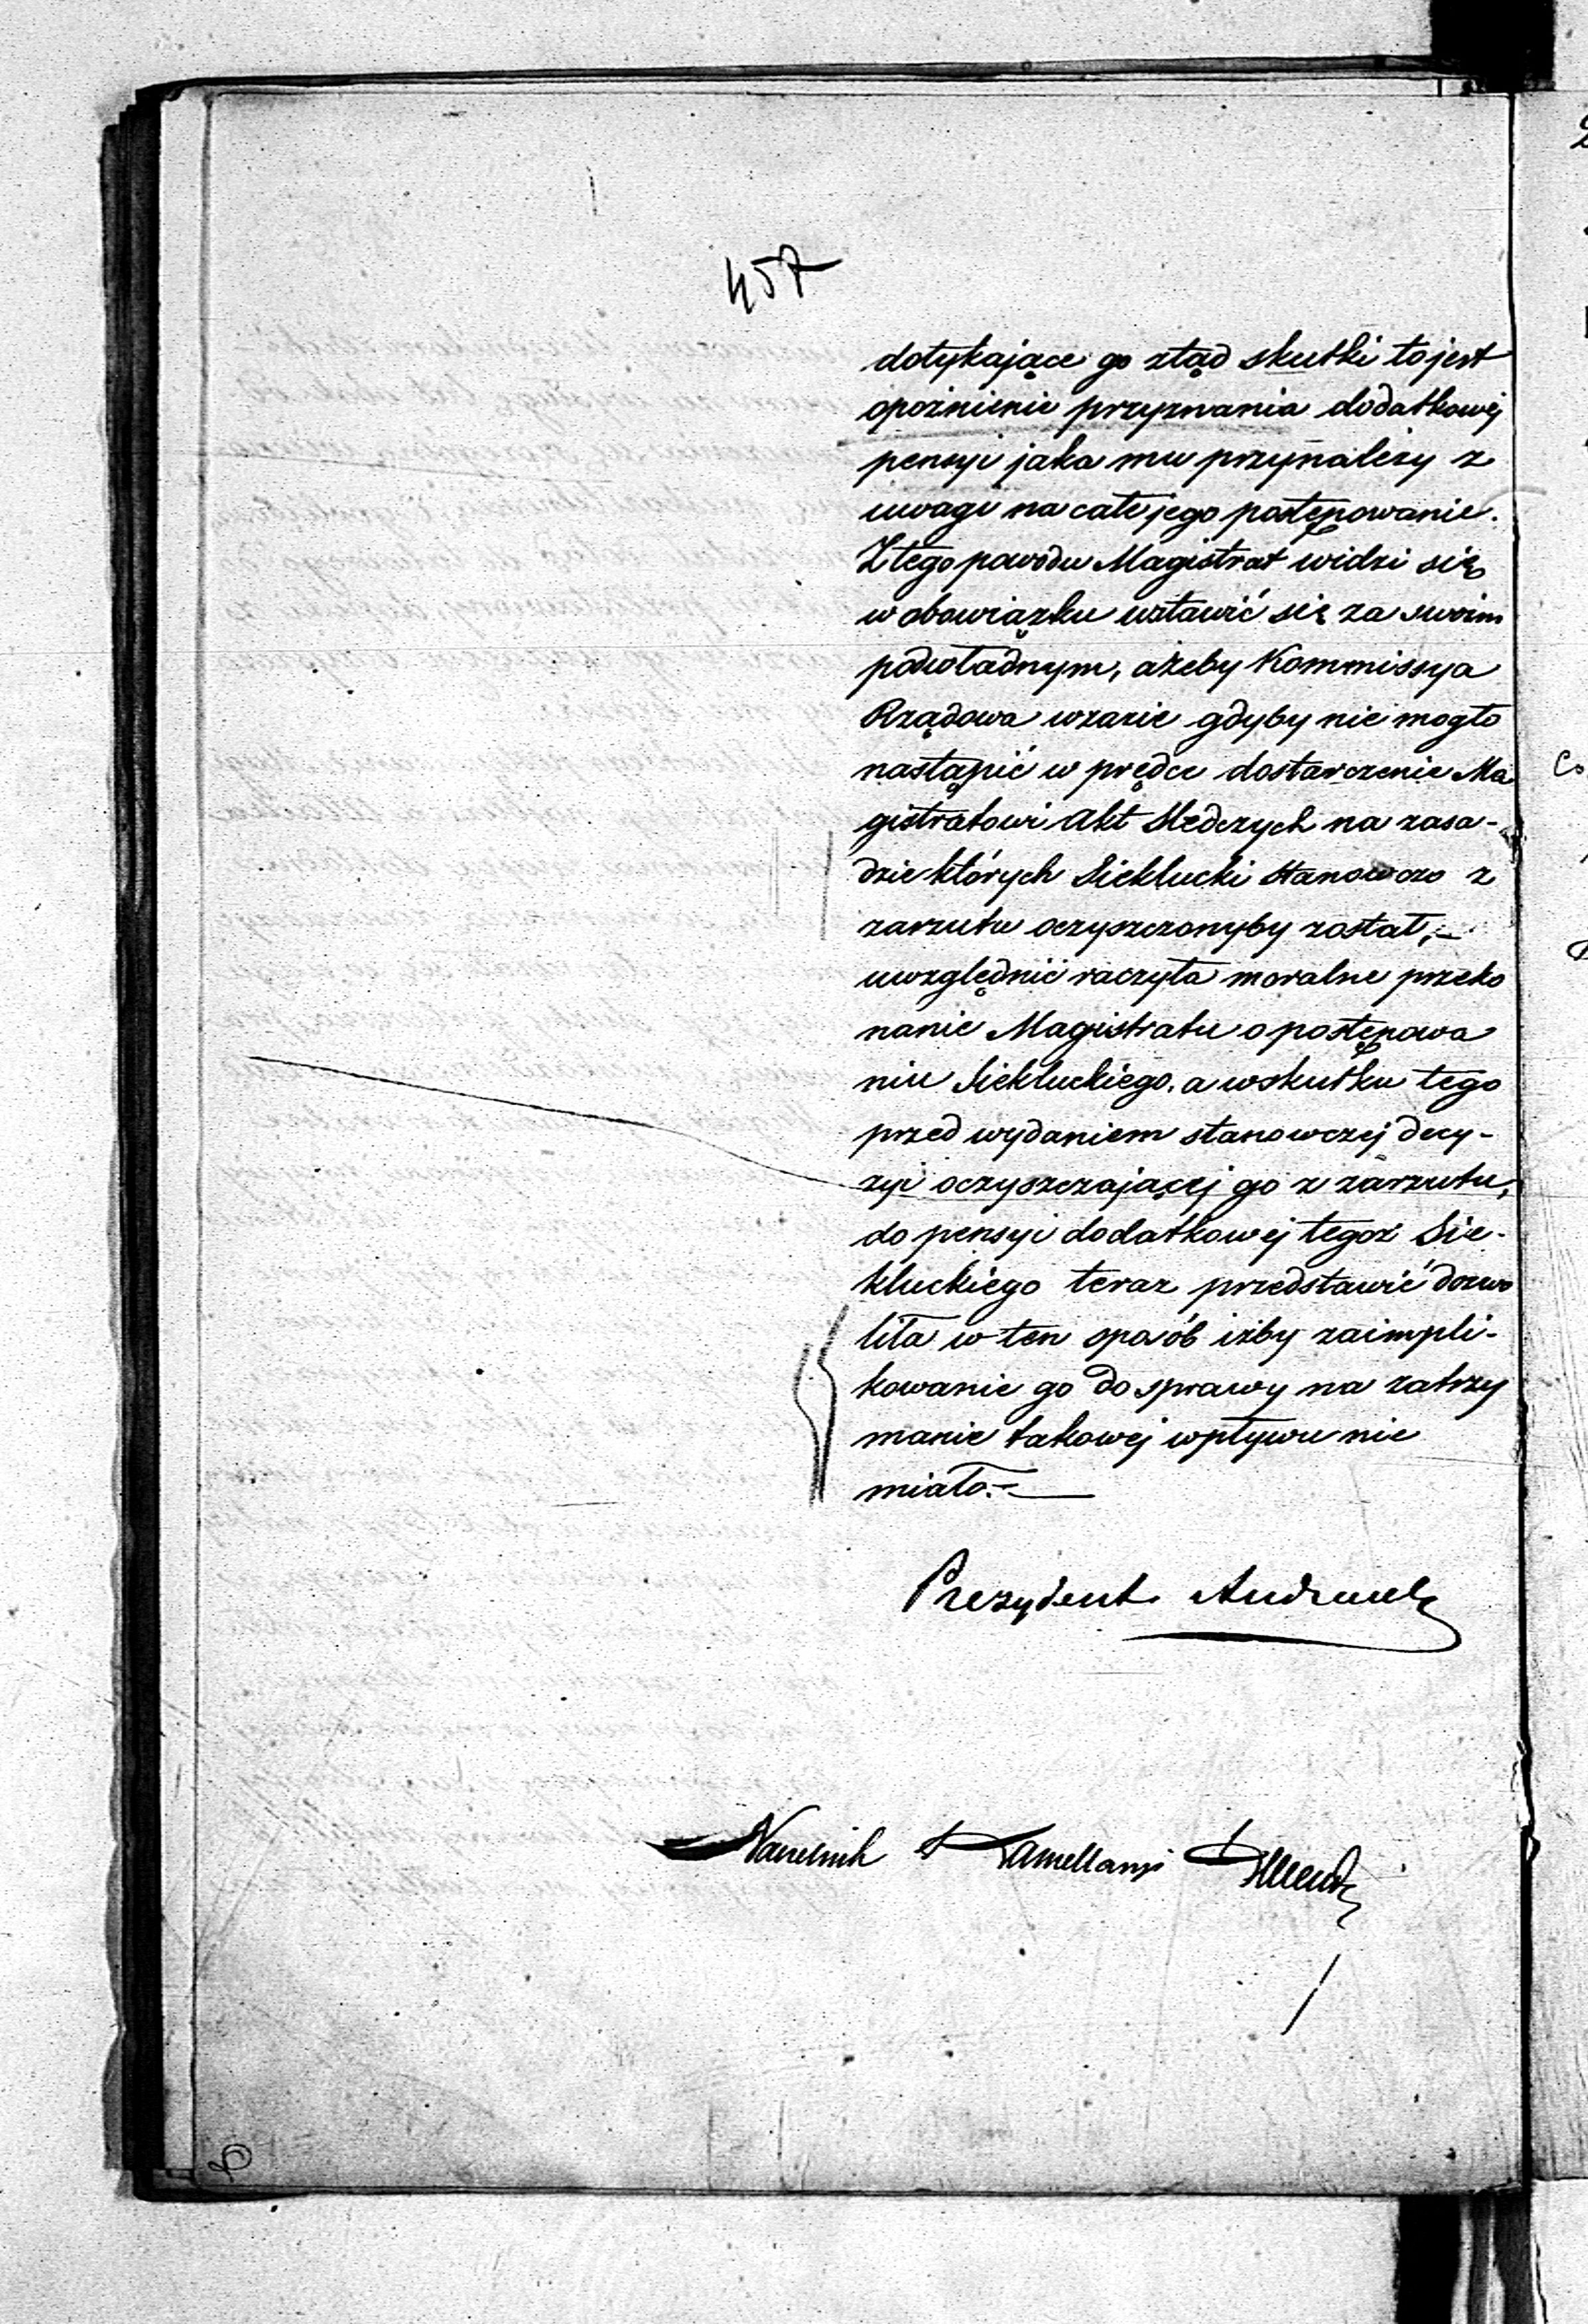 457
dotykające go ztąd skutki to jest
opoźnienie przyznania dodatkowéj
pensyi jaka mu przynależy z
uwagi na całe jego postępowanie.
Z tego powodu Magistrat widzi się
w obowiązku wstawić się za swoim
podwładnym, ażeby Kommissya
Rządowa w razie gdyby nie mogło
nastąpić w prędce dostarczenie Ma
gistratowi Akt śledczych na zasa-
dzie których Siekłucki stanowczo z
zarzutu oczyszczonyby został, –
uwzględnić raczyła moralne przeko
nanie Magistratu o postępowa
niu Siekluckiego, a wskutku tego
przed wydaniem stanowczej decy-
zyi oczyszczającej go z zarzutu,
do pensyi dodatkowej tegoż Sie-
kluckiego teraz przedstawić dozwo
liła w ten sposób iżby zaimpli-
kowanie go do sprawy na zatrzy
manie takowej wpływu nie
miało. –
Prezydent
Naczelnik Kancellaryi